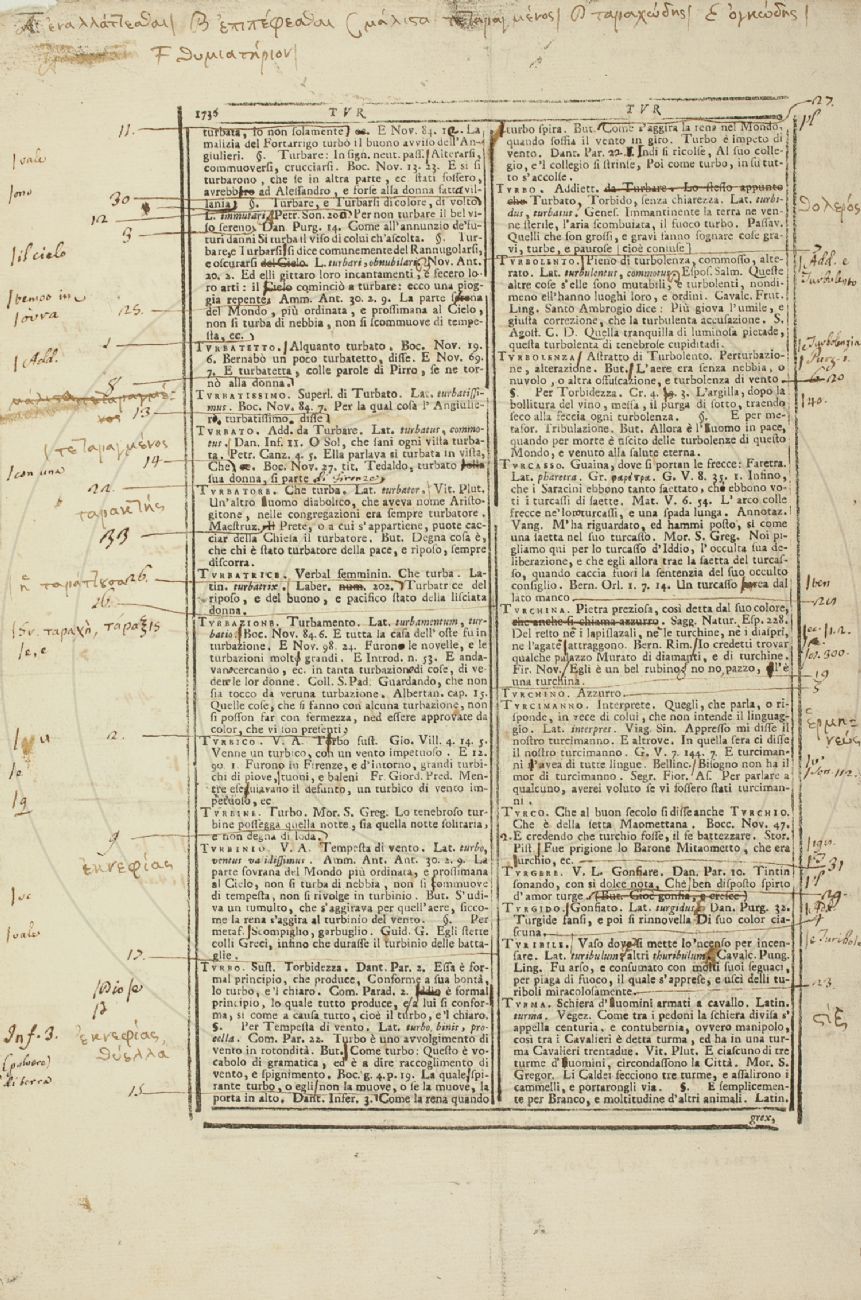 A ἐναλλάττεσθαι| B ἐπιπέφεσθαι C μάλιστα τεταραγμένος| D ταραχώδης| E ὀγκώδης|
F θυμιατήριον|
1736 TVR TVR
turbata, io non solamente
malizia del Fortarrigo turbò il buono avviso dell'An-
giulieri. §. Turbare: In sign. neut. pass. Alterarsi,
commuoversi, crucciarsi. Boc. Nov. 13. 23. E si si
turbarono, che se in altra parte, ec stati fossero,
avrebbero ad Alessandro, e forse alla donna fatta vil-
lania §. Turbare, e Turbarsi di colore, di volto
L. immutari. Petr. Son. 201 Per non turbare il bel vi-
so sereno. Dan Purg. 14. Come all'annunzio de'fu-
turi danni Si turba il viso di colui ch'ascolta. §. Tur-
bare, e Turbarsi si dice comunemente del Rannugolarsi,
e oscurarsi del Cielo. L. turbari, obnubilari. Nov. Ant.
20. 2. Ed elli gittaro loro incantamenti, e fecero lo-
ro arti: il Cielo cominciò a turbare: ecco una piog-
gia repente. Amm. Ant. 30. 2. 9. La parte sovrana
del Mondo, più ordinata, e prossimana al Cielo,
non si turba di nebbia, non si scommuove di tempe-
sta, ec.
TVRBATETTO. Alquanto turbato. Boc. Nov. 19.
6. Bernabò un poco turbatetto, disse. E Nov. 69.
7. E turbatetta, colle parole di Pirro, se ne tor-
nò alla donna.
TVRBATISSIMO. Superl. di Turbato. Lat. turbatissi-
mus. Boc. Nov. 84. 7. Per la qual cosa l'Angiulie-
ri, turbatissimo, disse
TVRBATO. Add. da Turbare. Lat. turbatus, commo-
tus. Dan. Inf. 11. O Sol, che sani ogni vista turba-
ta. Petr. Canz. 4. 5. Ella parlava sì turbata in vista,
Che ec. Boc. Nov. 27. tit. Tedaldo, turbato
sua donna, si parte di Firenze
TVRBATORE. Che turba. Lat. turbator. Vit. Plut.
Un'altro uomo diabolico, che aveva nome Aristo-
gitone, nelle congregazioni era sempre turbatore.
Maestruz. Prete, o a cui s'appartiene, puote cac-
ciar della Chiesa il turbatore. But. Degna cosa è,
che chi è stato turbatore della pace, e riposo, sempre
discorra.
TVRBATRICE. Verbal femminin. Che turba. La-
tin. turbatrix. Laber. num. 202. Turbatrice del
riposo, e del buono, e pacifico stato della lisciata
donna.
TVRBAZIONE. Turbamento. Lat. turbamentum, tur-
batio. Boc. Nov. 84. 6. E tutta la casa dell'oste fu in
turbazione. E Nov. 98. 24. Furono le novelle, e le
turbazioni molte grandi. E Introd. n. 53. E anda-
vano cercando, ec. in tanta turbazione di cose, di ve-
dere le lor donne. Coll. S. Pad. Guardando, che non
sia tocco da veruna turbazione. Albertan. cap. 15.
Quelle cose, che si fanno con alcuna turbazione, non
si posson far con fermezza, ned essere approvate da
color, che vi son presenti
TVRBICO. V. A. Turbo sust. Gio. Vill. 4. 14. 5.
Venne un turbico, con un vento impetuoso. E 12.
90. 1. Furono in Firenze, e d'intorno, grandi turbi-
chi di piove, tuoni, e baleni Fr. Giord. Pred. Men-
tre eseguiavano il defunto, un turbico di vento im-
petuoso, ec
TVRBINE. Turbo. Mor. S. Greg. Lo tenebroso tur-
bine possegga quella notte, sia quella notte solitaria,
e non degna di loda.
TVRBINIO. V. A. Tempesta di vento. Lat. turbo,
ventus validissimus. Amm. Ant. Ant. 30. 2. 9. La
parte sovrana del Mondo più ordinata, e prossimana
al Cielo, non si turba di nebbia, non si commuove
di tempesta, non si rivolge in turbinio. But. S'udi-
va un tumulto, che s'aggirava per quell'aere, sicco-
me la rena s'aggira al turbinio del vento. §. Per
metaf. Scompiglio, garbuglio. Guid. G. Egli stette
colli Greci, infino che durasse il turbinio delle batta-
glie.
TVRBO. Sust. Torbidezza. Dant. Par. 2. Essa è for-
mal principio, che produce, Conforme a sua bontà,
lo turbo, e'l chiaro. Com. Parad. 2. Iddio è formal
principio, lo quale tutto produce, e a lui si confor-
ma, sì come a causa tutto, cioè il turbo, e'l chiaro.
§. Per Tempesta di vento. Lat. turbo, binis, pro-
cella. Com. Par. 22. Turbo è uno avvolgimento di
vento in rotondità. But. Come turbo: Questo è vo-
cabolo di gramatica, ed è a dire raccoglimento di
vento, e spignimento. Boc. g. 4. p. 19. La quale spi-
rante turbo, o egli non la muove, o se la muove, la
porta in alto. Dant. Infer. 3. Come la rena quando
turbo spira. But. Come s'aggira la rena nel Mondo,
quando soffia il vento in giro. Turbo è impeto di
vento. Dant. Par. 22. Indi si ricolse, Al suo colle-
gio, e'l collegio si strinse, Poi come turbo, in su tut-
to s'accolse.
TVRBO. Addiett. da Turbare. Lo stesso appunto
che Turbato, Torbido, senza chiarezza. Lat. turbi-
dus, turbatus. Genes. Immantinente la terra ne ven-
ne sterile, l'aria scombuiata, il fuoco turbo. Passav.
Quelli che son grossi, e gravi fanno sognare cose gra-
vi, turbe, e paurose cioè confuse
TVRBOLENTO. Pieno di turbolenza, commosso, alte-
rato. Lat. turbulentus, commotus. Espos. Salm. Queste
altre cose s'elle sono mutabili, e turbolenti, nondi-
meno ell'hanno luoghi loro, e ordini. Cavalc. Frut.
Ling. Santo Ambrogio dice: Più giova l'umile, e
giusta correzione, che la turbolenta accusazione. S.
Agost. C. D. Quella tranquilla di luminosa pietade,
questa turbolenta di tenebrose cupiditadi.
TVRBOLENZA Astratto di Turbolento. Perturbazio-
ne, alterazione. But. L'aere era senza nebbia, o
nuvolo, o altra offuscazione, e turbolenza di vento
§. Per Torbidezza. Cr. 4. 3. L'argilla, dopo la
bollitura del vino, messa, il purga di sotto, traendo
seco alla feccia ogni turbolenza. §. E per me-
tafor. Tribulazione. But. Allora è l'uomo in pace,
quando per morte è uscito delle turbolenze di questo
Mondo, e venuto alla salute eterna.
TVRCASSO. Guaina, dove si portan le frecce: Faretra.
Lat. pharetra. Gr. φαρέτρα. G. V. 8. 35. 1. Infino,
che i Saracini ebbono tanto saettato, che ebbono vo-
ti i turcassi di saette. Mat. V. 6. 54. L'arco colle
frecce ne'loro turcassi, e una spada lunga. Annotaz.
Vang. M'ha riguardato, ed hammi posto, sì come
una saetta nel suo turcasso. Mor. S. Greg. Noi pi-
gliamo qui per lo turcasso d'Iddio, l'occulta sua de-
liberazione, e che egli allora trae la saetta del turcas-
so, quando caccia fuori la sentenzia del suo occulto
consiglio. Bern. Orl. 1. 7. 14. Un turcasso avea dal
lato manco
TVRCHINA. Pietra preziosa, così detta dal suo colore,
che anche si chiama azzurro. Sagg. Natur. Esp. 228.
Del resto nè i lapislazali, nè le turchine, nè i diaspri,
nè l'agate attraggono. Bern. Rim. Io credetti trovar
qualche palazzo Murato di diamanti, e di turchine.
Fir. Nov. Egli è un bel rubino; no no, pazzo, ell'è
una turchina.
TVRCHINO. Azzurro.
TVRCIMANNO. Interprete. Quegli, che parla, o ri-
sponde, in vece di colui, che non intende il linguag-
gio. Lat. interpres. Viag. Sin. Appresso mi disse il
nostro turcimanno. E altrove. In quella sera ci disse
il nostro turcimanno. G. V. 7. 144. 7. E turciman-
ni v'avea di tutte lingue. Bellinc. Bisogno non ha il
mor di turcimanno. Segr. Fior. As. Per parlare a
qualcuno, averei voluto se vi fossero stati turciman-
ni.
TVRCO. Che al buon secolo si disse anche TVRCHIO.
Che è della setta Maomettana. Bocc. Nov. 47.
2. E credendo che turchio fosse, il fe battezzare. Stor.
Pist. Fue prigione lo Barone Mitaometto, che era
turchio, ec.
TVRGERE. V. L. Gonfiare. Dan. Par. 10. Tintin
sonando, con sì dolce nota, Che'l ben disposto spirto
d'amor turge. (But. Cioè gonfia, e cresce)
TVRGIDO. Gonfiato. Lat. turgidus. Dan. Purg. 32.
Turgide fansi, e poi si rinnovella Di suo color cia-
scuna.
TVRIBILE. Vaso dove si mette lo'ncenso per incen-
sare. Lat. turibulum, altri thuribulum. Cavalc. Pung.
Ling. Fu arso, e consumato con molti suoi seguaci,
per piaga di fuoco, il quale s'apprese, e uscì delli tu-
riboli miracolosamente.
TVRMA. Schiera d'uomini armati a cavallo. Latin.
turma. Vegez. Come tra i pedoni la schiera divisa s'
appella centuria. e contubernia, ovvero manipolo,
così tra i Cavalieri è detta turma, ed ha in una tur-
ma Cavalieri trentadue. Vit. Plut. E ciascuno di tre
turme d'uomini, circondassono la Città. Mor. S.
Gregor. Li Caldei fecciono tre turme, e assalirono i
cammelli, e portarongli via. §. E semplicemen-
te per Branco, e moltitudine d'altri animali. Latin.
grex,
11.
|vale
|ono
30
12
3
|il cielo
25.
|Add.
8
13
τεταραγμένος
14
|con una
22.
33
26.
9
ἐκνεφίας
|vale
15
Inf. 3.
ἐκνεφίας,
θύελλα
15
27.
θολερός
7
|Add. e
Turbolento
|e Turbolenza
20
|40.
|ben
19
5
ἑρμη-
νεύς
31
|e Turibolo
23